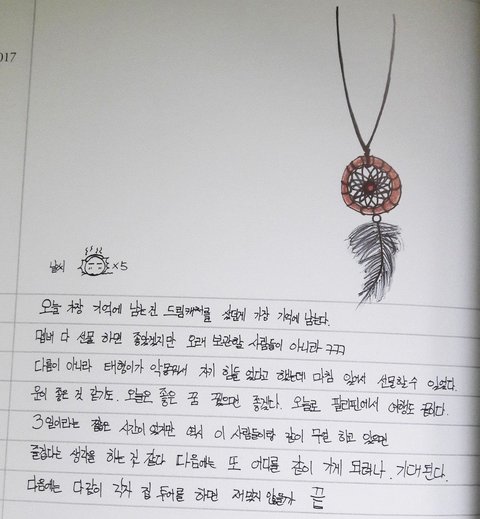 017
날씨 x5
오늘 가장 기억에 남는건 드림캐쳐를 샀던게 가장 기억에 남는다.
멤버 다 선물 하면 좋았겠지만 오래 보관할 사람들이 아니라 ㅋㅋㅋ
다름이 아니라 태형이가 악몽꿔서 자기 힘들었다고 했는데 마침 있어서 선물할수 있었다.
운이 좋은 것 같기도. 오늘은 좋은 꿈 꿨으면 좋겠다. 오늘로 필리핀에서 여행도 끝이다.
3일이라는 짧은 시간이였지만 역시 이 사람들이랑 같이 무얼 하고 있으면
즐겁다는 생각을 하는 것 같다 다음에는 또 어디를 같이 가게 되려나. 기대된다.
다음에는 다같이 각자 집 투어를 하면 재밌지 않을까 끝